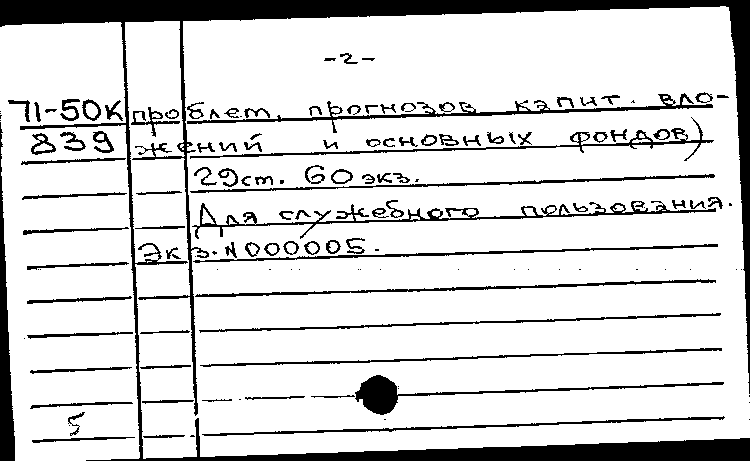 -2-
71-50К проблем, прогнозов капит. вло-
839 жений и основных фондов)
29ст. 60 экз.
Для служебного пользования.
Экз. N 000005.
5